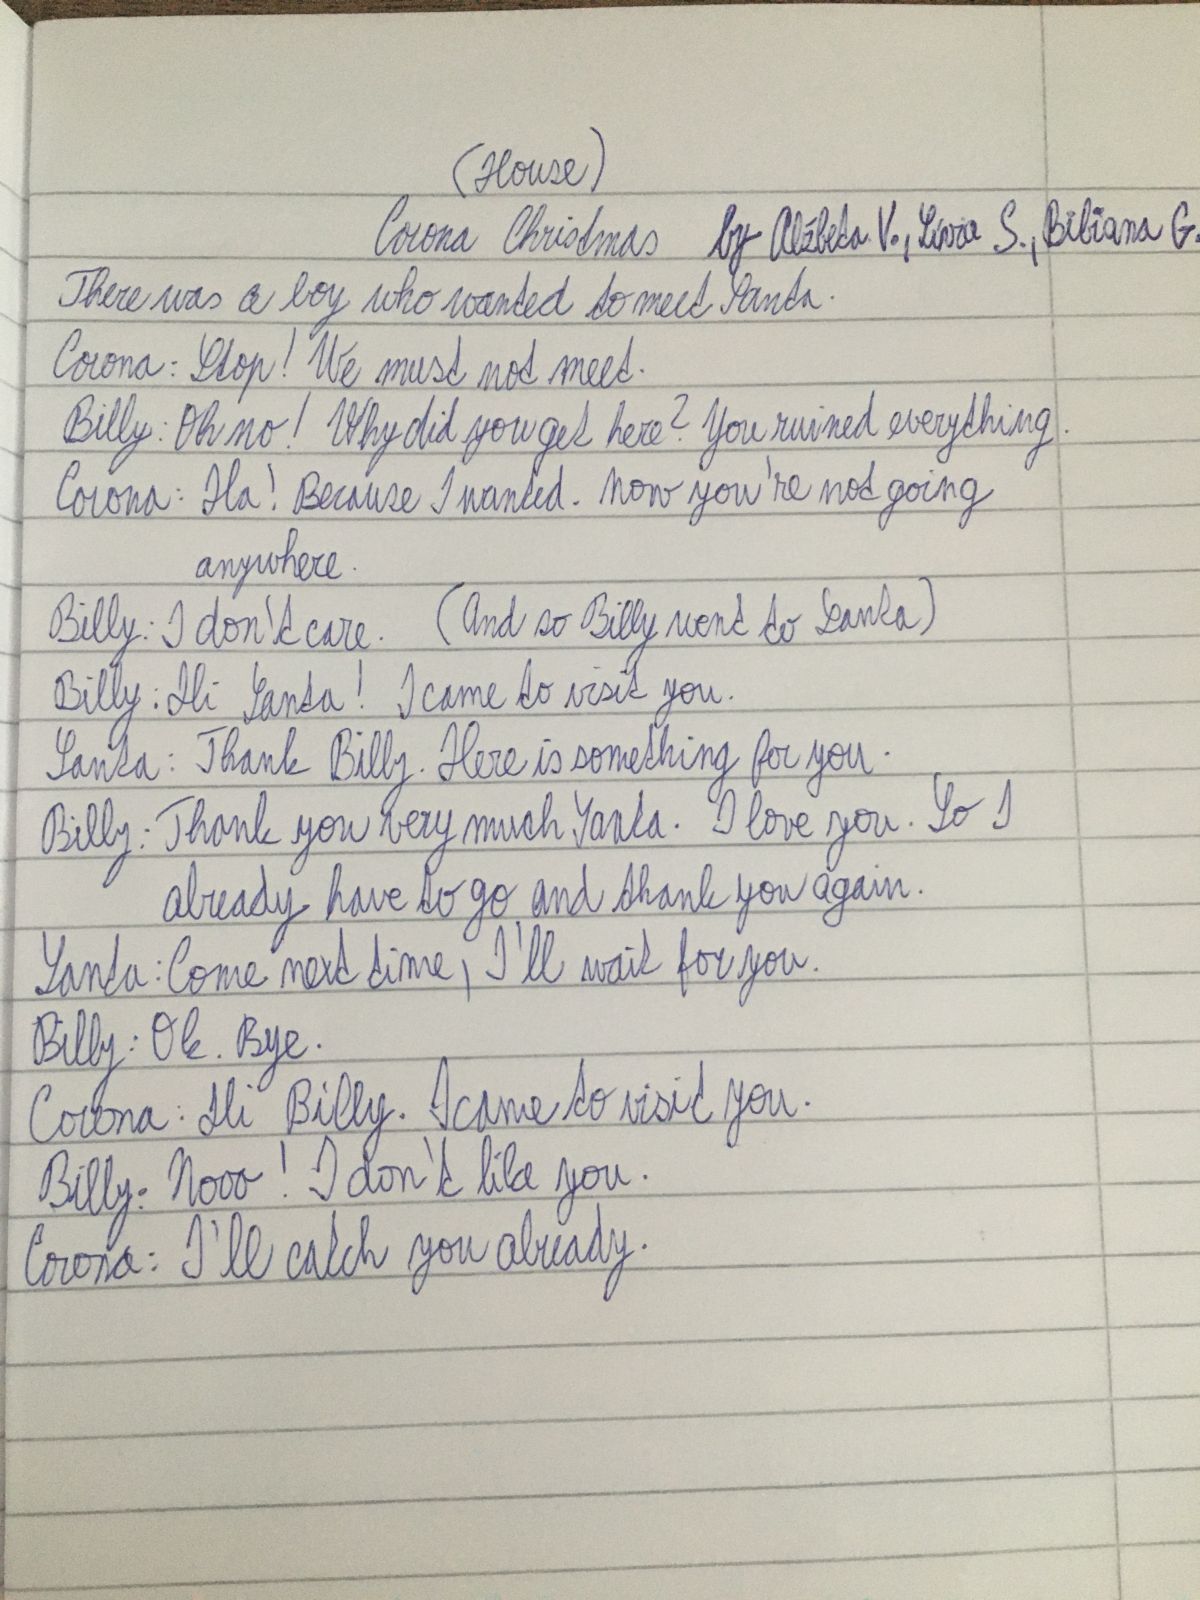 (House)
Corona Christmas by Alžbeta V., Lívia S., Bibiana G.
There was a boy who wanted to meet Santa.
Corona: Stop! We must not meet.
Billy: Oh no! Why did you get here? You ruined everything.
Corona: Ha! Because I wanted. Now you're not going
anywhere.
Billy: I don't care. (And so Billy went to Santa)
Billy: Hi Santa! I came to visit you.
Santa: Thank Billy. Here is something for you.
Billy: Thank you very much Santa. I love you. So I
already have to go and thank you again.
Santa: Come next time, I'll wait for you.
Billy: Ok. Bye.
Corona: Hi Billy. I came to visit you.
Billy: Nooo! I don't like you.
Corona: I'll catch you already.